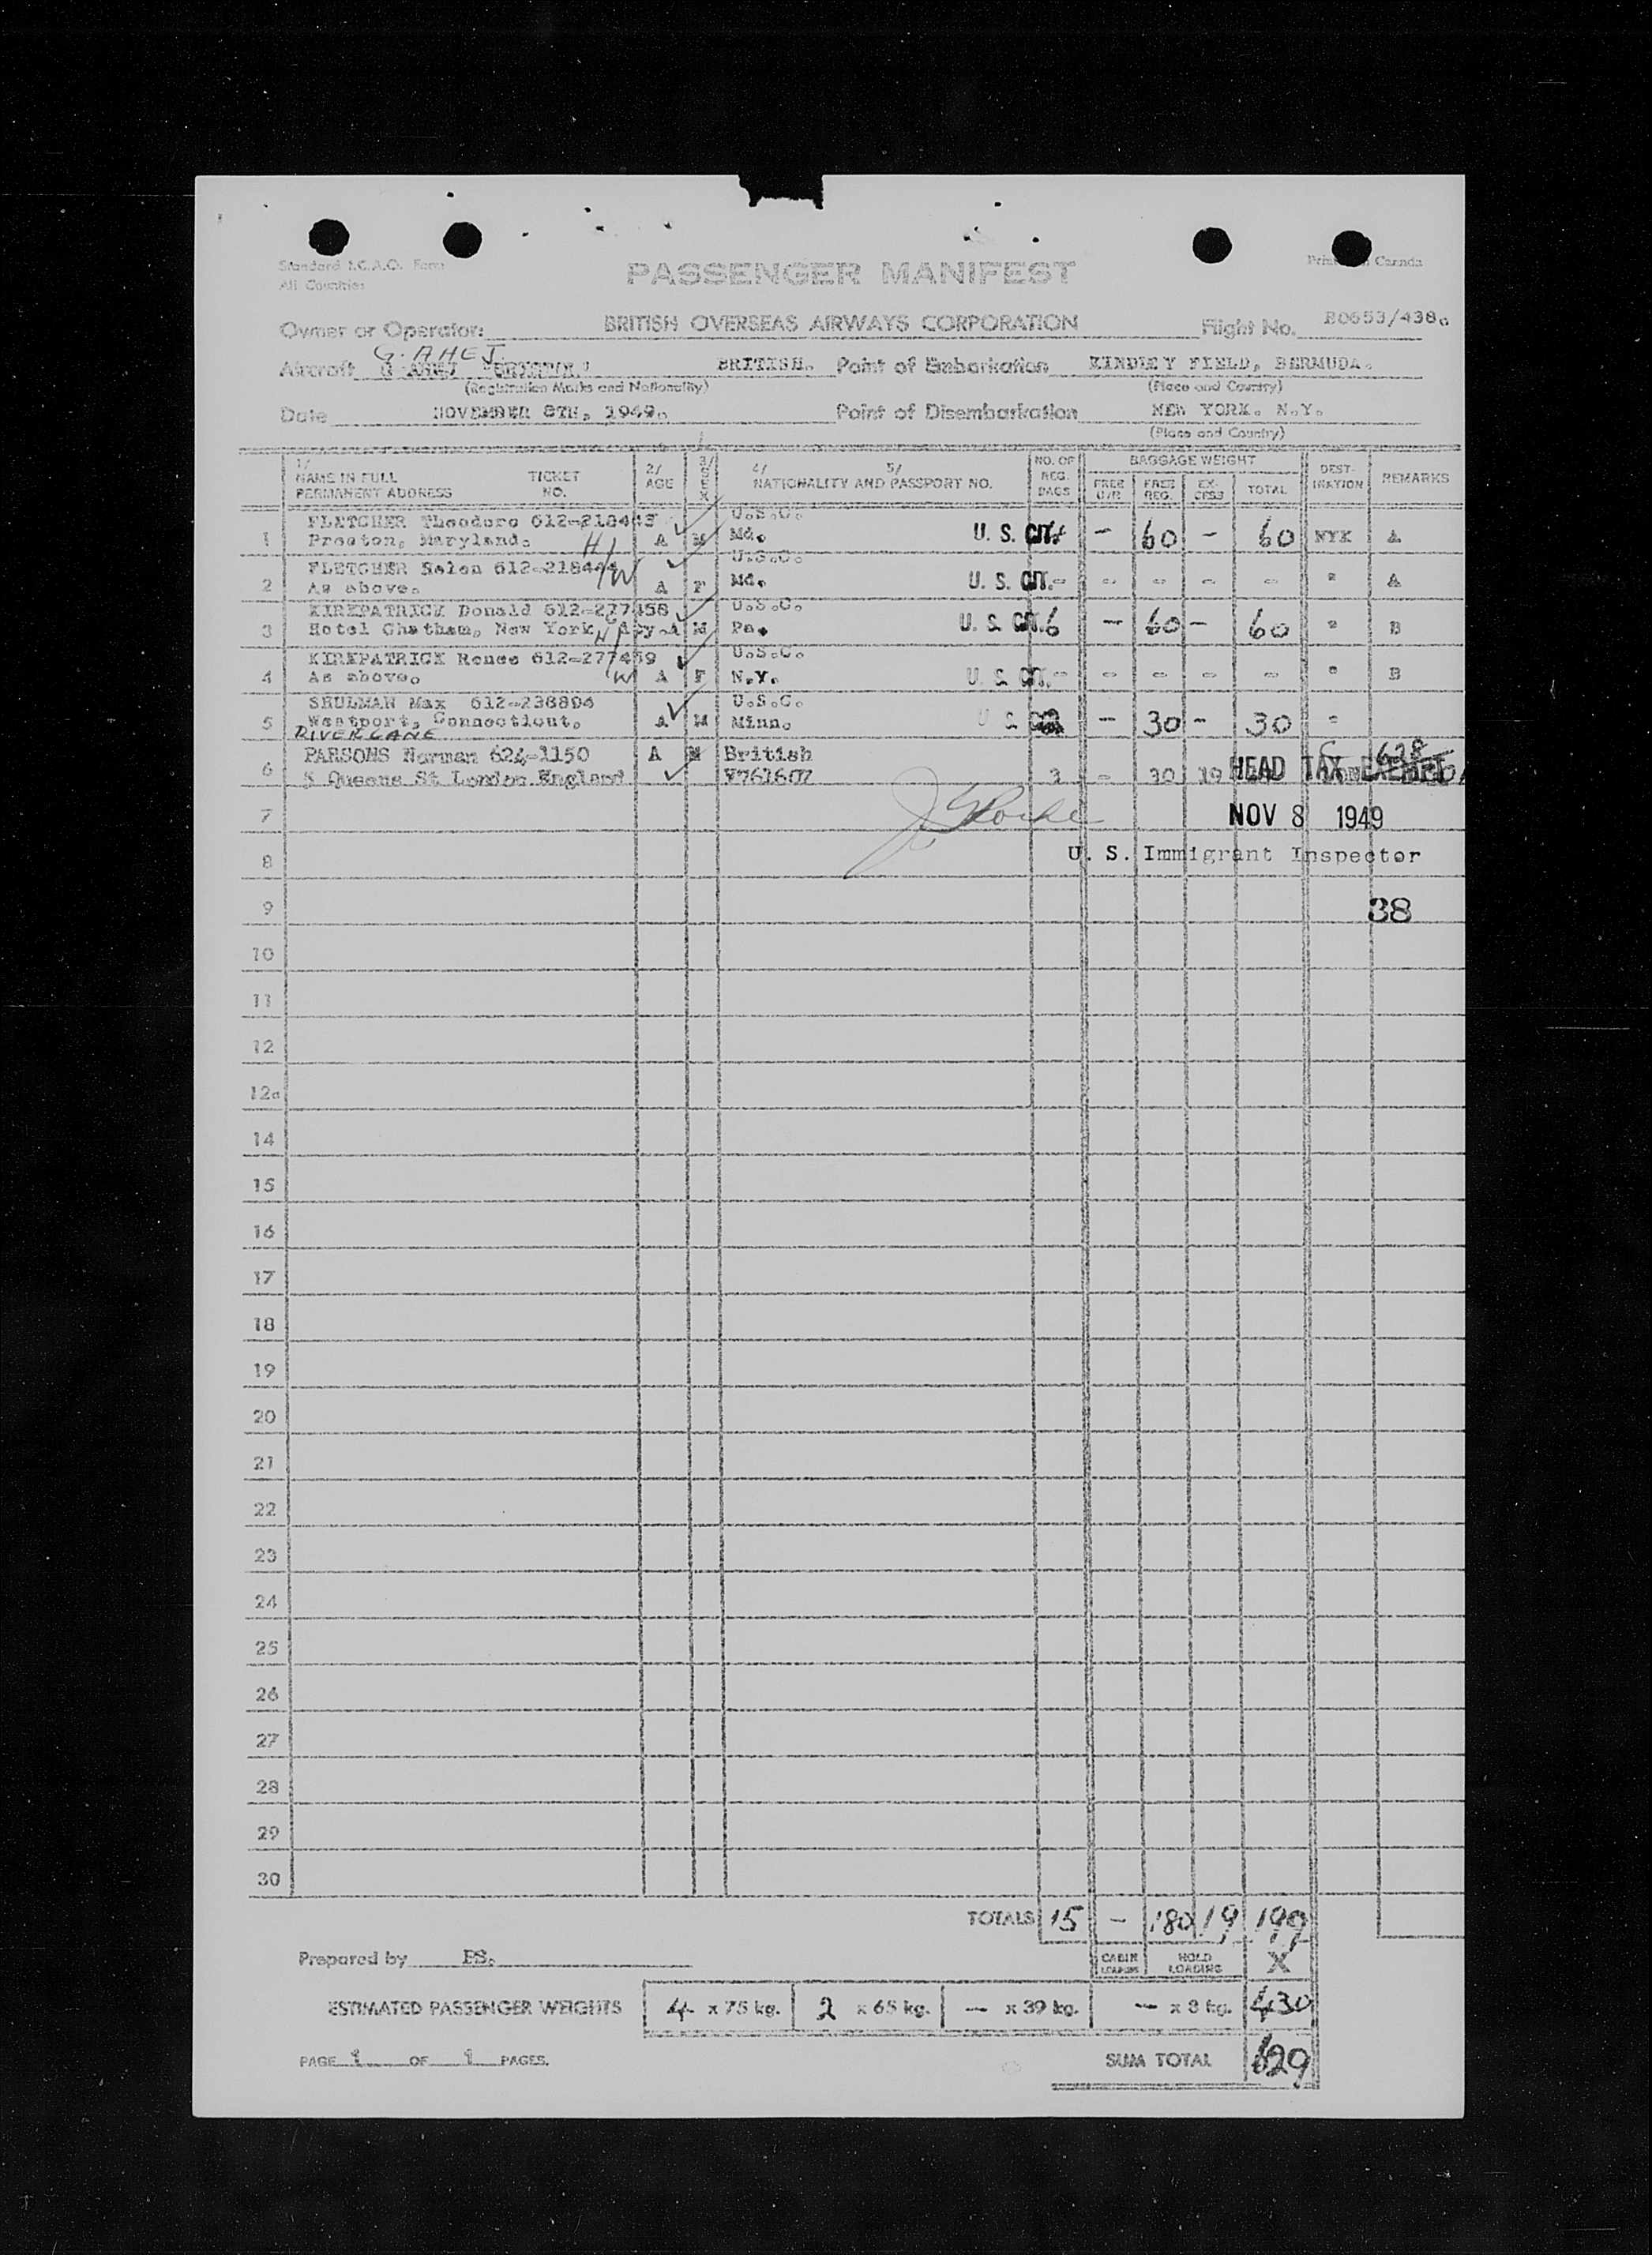 Standard I.C.A.O. Form
All Countries
PASSENGER MANIFEST
Canada
Owner or Operator: BRITISH OVERSEAS AIRWAYS CORPORATION Flight No. BO653/438.
G. AHEJ
Aircraft BRITISH. Point of Embarkation KINDLEY FIELD, BERMUDA.
(Registration Marks and Nationality) (Place and Country)
Date NOVEMBER 8TH, 1949. Point of Disembarkation NEW YORK. N.Y.
(Place and Country)
1/ NAME IN FULL PERMANENT ADDRESS TICKET NO. 2/ AGE 3/ SEX 4/ 5/ NATIONALITY AND PASSPORT NO. NO. OF REG. BAGS BAGGAGE WEIGHT FREE U/R FREE REG. EX-CESS TOTAL DEST-INATION REMARKS
FLETCHER Theodore 612-218443 U.S.C.
1 Preston, Maryland. A M Md. U. S. CIT. 4 - 60 - 60 NYK A
FLETCHER Helen 612-218444 H/W U.S.C.
2 As above. A F Md. U. S. CIT. - - - - - " A
KIRKPATRICK Donald 612-277458 U.S.C.
3 Hotel Chatham, New York, City A M Pa. U. S. CIT. 6 - 60 - 60 " B
KIRKPATRICK Renee 612-277459 H/W U.S.C.
4 As above. A F N.Y. U. S. CIT. - - - - - " B
SHULMAN Max 612-238894 U.S.C.
5 Westport, Connecticut. A M Minn. U. S. - 30 - 30 "
RIVER LANE
PARSONS Norman 624-1150 A M British 628
6 5 Queens St London England V761607 3 - 30 19 HEAD TAX EXEMPT
7 NOV 8 1949
8 U. S. Immigrant Inspector
9 38
10
11
12
12a
14
15
16
17
18
19
20
21
22
23
24
25
26
27
28
29
30
TOTALS 15 - 180 19 199
Prepared by PS. CABIN LOADING HOLD LOADING X
ESTIMATED PASSENGER WEIGHTS 4 x 75 kg. 2 x 65 kg. - x 39 kg. - x 8 kg. 430
PAGE 1 OF 1 PAGES. SUM TOTAL 629